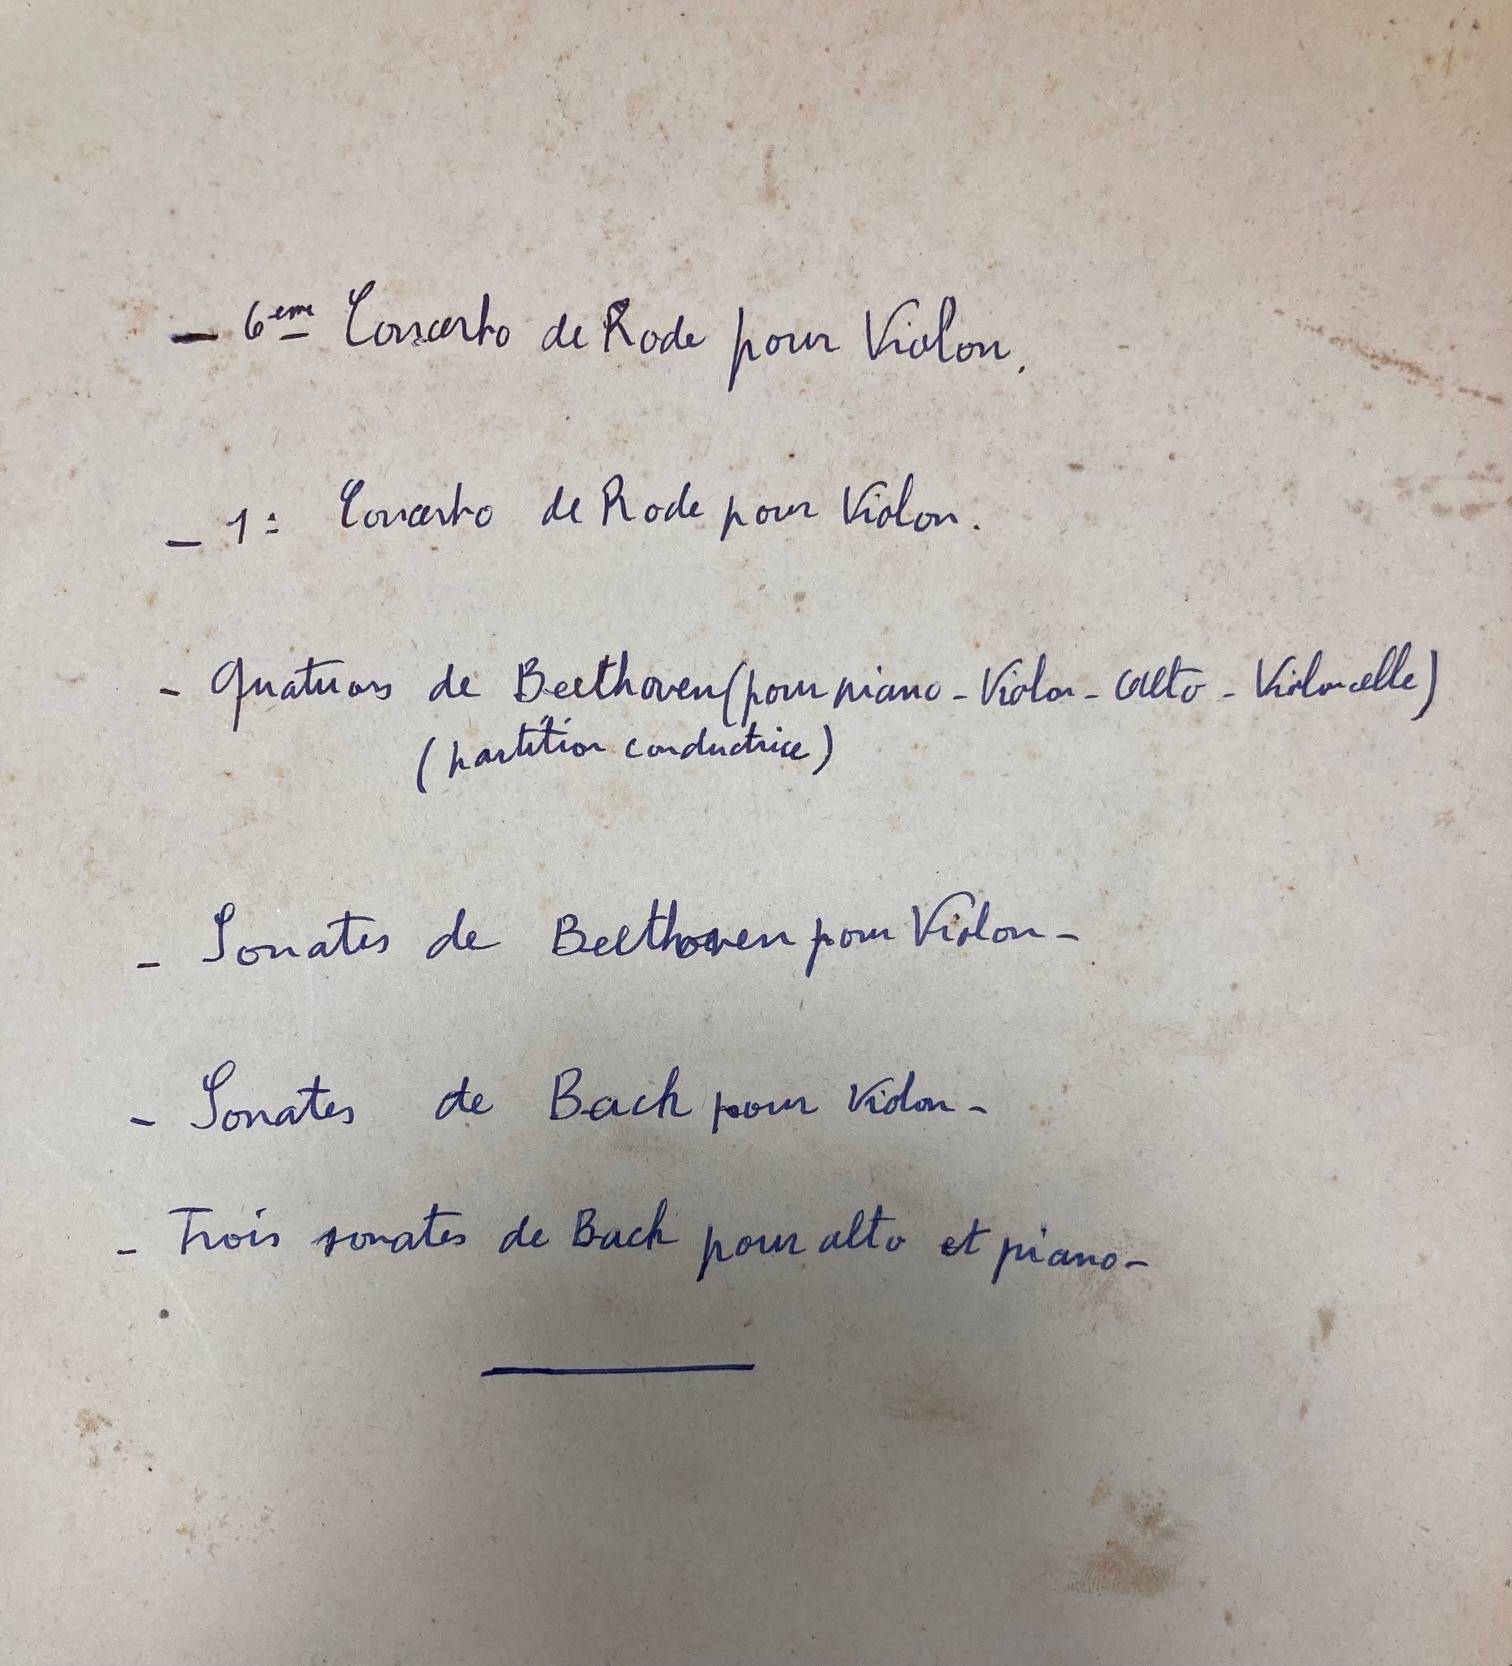 - 6eme Concerto de Rode pour Violon.
- 1: Concerto de Rode pour Violon.
- Quatuors de Beethoven (pour piano - Violon - Alto - Violoncelle)
(partition conductrice)
- Sonates de Beethoven pour Violon -
- Sonates de Bach pour Violon -
- Trois sonates de Bach pour alto et piano -